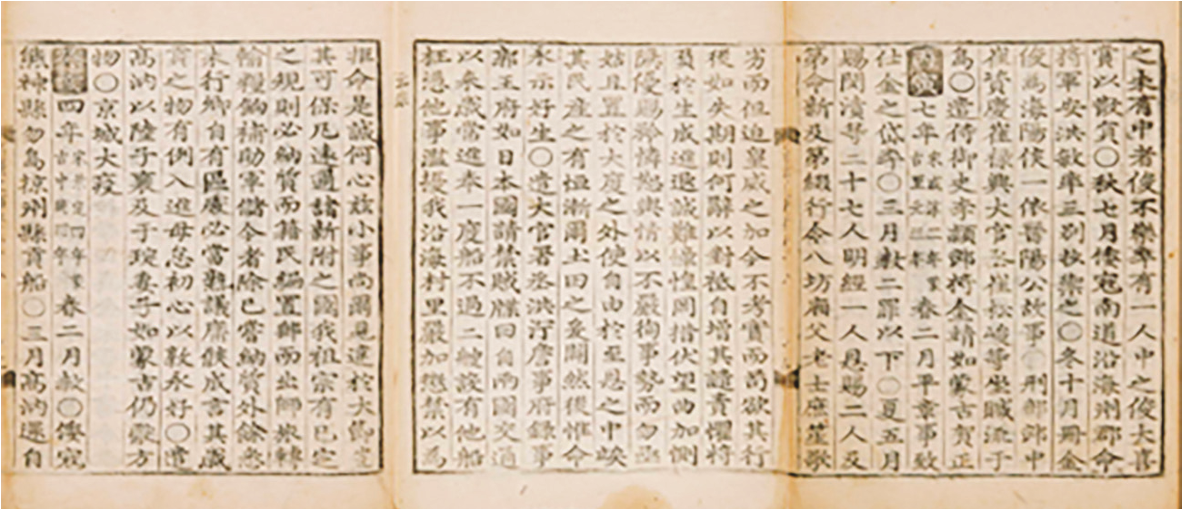 之未有中者俊不樂率有一人中之俊大喜
賞以散員○秋七月倭寇南道沿海州郡命
將軍安洪敏率三別抄禦之○冬十月冊金
俊爲海陽侯一依晉陽公故事○刑部郎中
崔贇慶崔祿興大官丞崔松峻等坐贓流于
島○遣侍御史李顗郎將金靖如蒙古賀正
七年宋咸淳二年蒙古至元二年春二月平章事致
仕金之岱卒○三月赦二罪以下○夏五月
賜閔漬等二十七人明經一人恩賜二人及
第令新及第綴行令八坊廂父老士庶笙歌
劣而但迫皇威之加令不考實而苟欲其行
後如失期則何辭以對祗自增其譴責懼將
及於生成進退誠難憧惶罔措伏望曲加惻
隱優賜矜憐恕與情以不嚴徇事勢而勿亟
姑且置於大度之外使自由於至恩之中峻
其民產之有恒漸爾土田之爰闢然後惟命
永示好生○遣大官署丞洪泞詹事府錄事
郭王府如日本國請禁賊牒曰自兩國交通
以來歲嘗進奉一度船不過二艘設有他船
枉憑他事濫擾我沿海村里嚴加懲禁以爲
推命是誠何心玆小事尚爾見違於大節豈
其可保凡遠邇諸新附之國我祖宗有已定
之規則必納質而籍民編置郵而出師旅轉
輸糧餉補助軍儲今者除已嘗納質外餘悉
未行鄕自有區處必當熟議庸候成言其歲
貢之物有例入進毋怠初心以敦永好○遣
高汭以陸子襄及于琔妻子如蒙古仍獻方
物○京城大疫
四年宋景定四年蒙古中統四年春二月赦○倭寇
熊神縣勿島掠州縣貢船○三月高汭還自